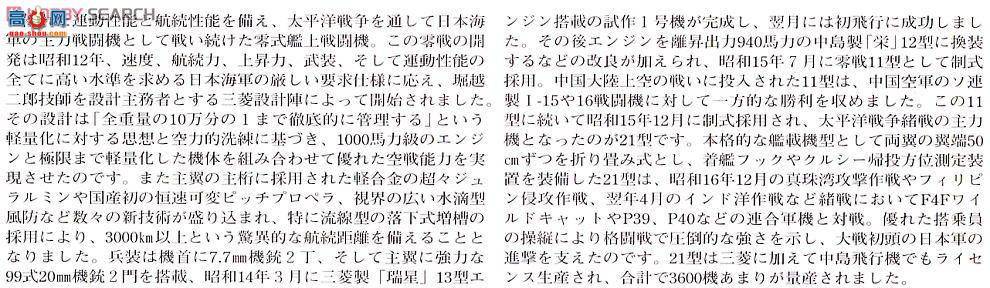 運動性能と航続性能を備え、太平洋戦争を通して日本海
軍の主力戦闘機として戦い続けた零式艦上戦闘機。この零戦の開
発は昭和12年、速度、航続力、上昇力、武装、そして運動性能の
全てに高い水準を求める日本海軍の厳しい要求仕様に応え、堀越
二郎技師を設計主務者とする三菱設計陣によって開始されました。
その設計は「全重量の10万分の1まで徹底的に管理する」という
軽量化に対する思想と空力的洗練に基づき、1000馬力級のエンジ
ンと極限まで軽量化した機体を組み合わせて優れた空戦能力を実
現させたのです。また主翼の主桁に採用された軽合金の超々ジュ
ラルミンや国産初の恒速可変ピッチプロペラ、視界の広い水滴型
風防など数々の新技術が盛り込まれ、特に流線型の落下式増槽の
採用により、3000km以上という驚異的な航続距離を備えることと
なりました。兵装は機首に7.7mm機銃2丁、そして主翼に強力な
99式20mm機銃2門を搭載、昭和14年3月に三菱製「瑞星」13型エ
ンジン搭載の試作1号機が完成し、翌月には初飛行に成功しまし
た。その後エンジンを離昇出力940馬力の中島製「栄」12型に換装
するなどの改良が加えられ、昭和15年7月に零戦11型として制式
採用。中国大陸上空の戦いに投入された11型は、中国空軍のソ連
製I-15や16戦闘機に対して一方的な勝利を収めました。この11
型に続いて昭和15年12月に制式採用され、太平洋戦争緒戦の主力
機となったのが21型です。本格的な艦載機型として両翼の翼端50
cmずつを折り畳み式とし、着艦フックやクルシー帰投方位測定装
置を装備した21型は、昭和16年12月の真珠湾攻撃作戦やフィリピ
ン侵攻作戦、翌年4月のインド洋作戦など緒戦においてF4Fワイ
ルドキャットやP39、P40などの連合軍機と対戦。優れた搭乗員
の操縦により格闘戦で圧倒的な強さを示し、大戦初頭の日本軍の
進撃を支えたのです。21型は三菱に加えて中島飛行機でもライセ
ンス生産され、合計で3600機あまりが量産されました。